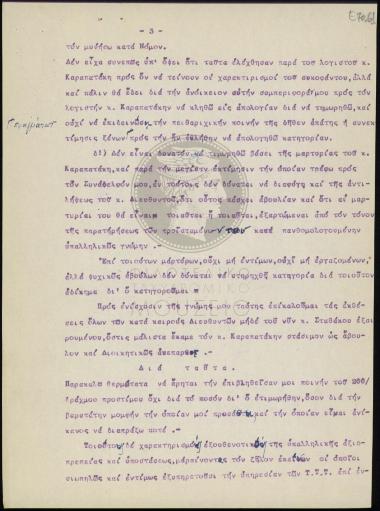 - 3 -
τόν μυήσω κατά Νόμον.
Δέν εἶχα συνεπῶς ὑπ' ὄψει ὅτι ταῦτα ἐλέχθησαν παρά τοῦ λογιστοῦ κ.
Καραπατάκη πρός ὅν νά τείνουν οἱ χαρακτηρισμοί τοῦ συκοφάντου, ἀλλά
καί πάλιν θά ἔδει διά τήν ἀνοίκειον αὐτήν συμπεριφοράν μου πρός τόν
λογιστήν κ. Καραπατάκην νά κληθῶ εἰς ἀπολογίαν διά νά τιμωρηθῶ, καί
οὐχί νά ἐπιδεινώσῃ τήν πειθαρχικήν ποινήν τῆς δῆθεν ἀπάτης ἡ συνεκ
τίμησις ξένων πρός τήν ἥν ἐκλήθην νά ἀπολογηθῶ κατηγορίαν.
δ') Δέν εἶναι δυνατόν νά τιμωρηθῶ βάσει τῆς μαρτυρίας τοῦ κ.
Καραπατάκη, καί παρά τήν μεγίστην ἐκτίμησιν τήν ὁποίαν τρέφω πρός
τόν Συνάδελφόν μου, ἐν τούτοις δέν δύναται νά διαφύγῃ καί τῆς ἀντι-
λήψεως τοῦ κ. Διευθυντοῦ, ὅτι οὗτος πάσχει ἀβουλίαν καί ὅτι αἱ μαρ-
τυρίαι του θά εἶναι τοιαῦται ἤ τοιαῦται, ἐξαρτώμεναι ἀπό τόν τόνον
τῆς παρατηρήσεως τῶν προϊσταμένων του κατά πανθομολογουμένην
ὑπαλληλικήν γνώμην.-
"Ἐπί τοιούτων μαρτύρων, οὐχί μή ἐντίμων, οὐχί μή ἐργαζομένων,
ἀλλά ψυχικῶς ἀβούλων δέν δύναται νά στηριχθῇ κατηγορία διά τοιοῦτον
ἀδίκημα δι' ὅ κατηγοροῦμαι"
Πρός ἐνίσχυσιν τῆς γνώμης μου ταύτης ἐπικαλοῦμαι τάς ἐκθέ-
σεις ὅλων τῶν κατά καιρούς Διευθυντῶν μηδέ τοῦ νῦν κ. Σταθάκου ἐξαι
ρουμένου, ὅστις μάλιστα ἔκαμε τόν κ. Καραπατάκην στάσιμον ὡς ἄβου-
λον καί Διοικητικῶς ἀνεπαρκῆ.-
Διά ταῦτα.
Παρακαλῶ θερμότατα νά ἤρηται τήν ἐπιβληθεῖσάν μοι ποινήν τοῦ 200/
δράχμου προστίμου ὄχι διά τό ποσόν δι' ὅ ἐτιμωρήθην, ὅσον διά τήν
βαρυτάτην μομφήν τήν ὁποίαν μοί προσάπτει καί τήν ὁποίαν εἶμαι ἀνί-
κανος νά διαπράξω ποτέ.-
Τοιοῦτοι δέ χαρακτηρισμοί ἐξουθενωτικοί τῆς ὑπαλληλικῆς ἀξιο-
πρεπείας καί ὑποστάσεως, μαραίνοντας τόν ζῆλον ἐκείνων οἱ ὁποῖοι
σιωπηλῶς καί ἐντίμως ἐξυπηρετοῦσι τήν ὑπηρεσίαν τῶν Τ.Τ.Τ. ἐπί ἔν-